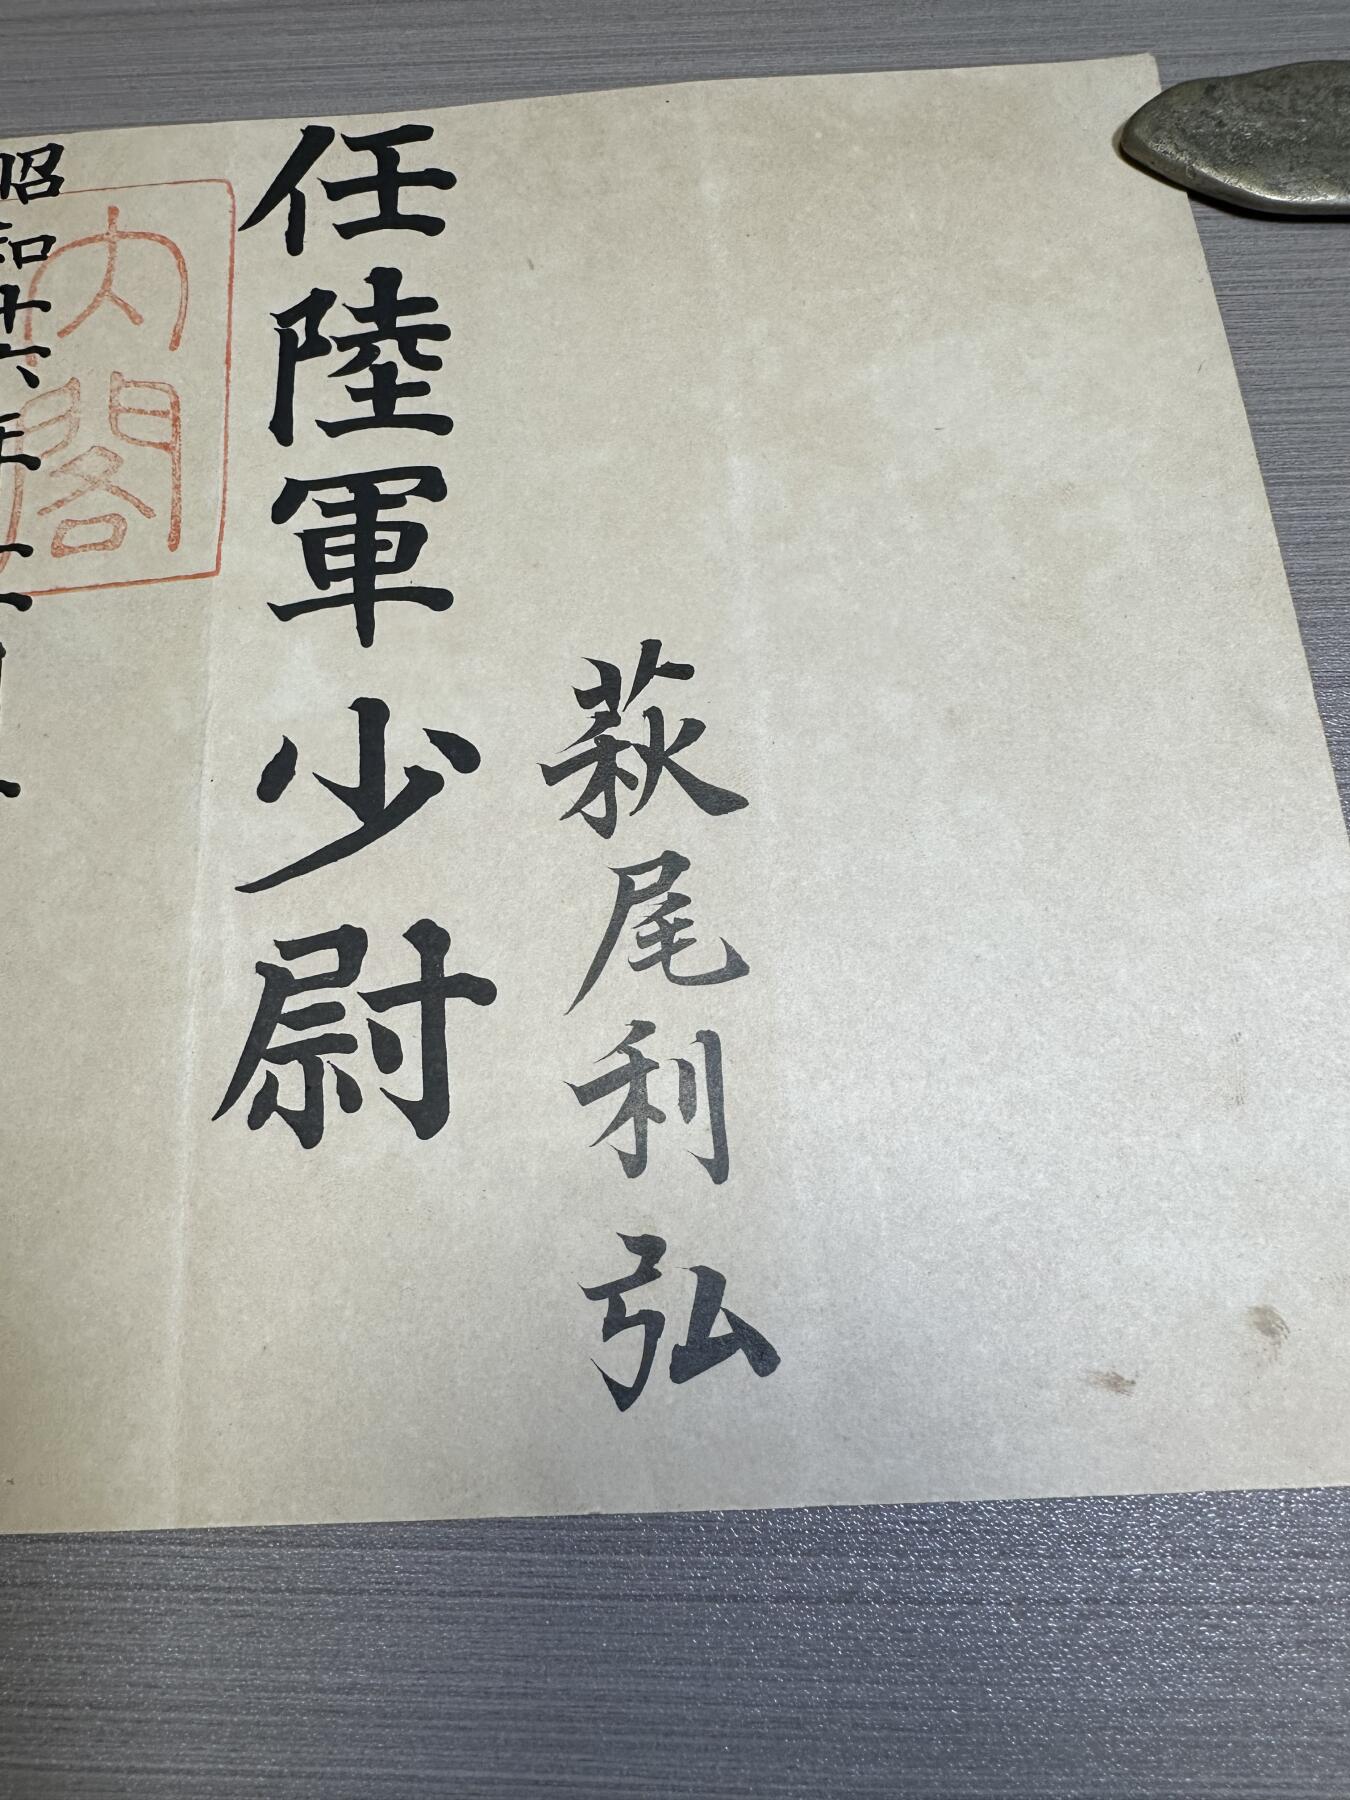 萩尾利弘
任陸軍少尉
昭和十六年
内閣